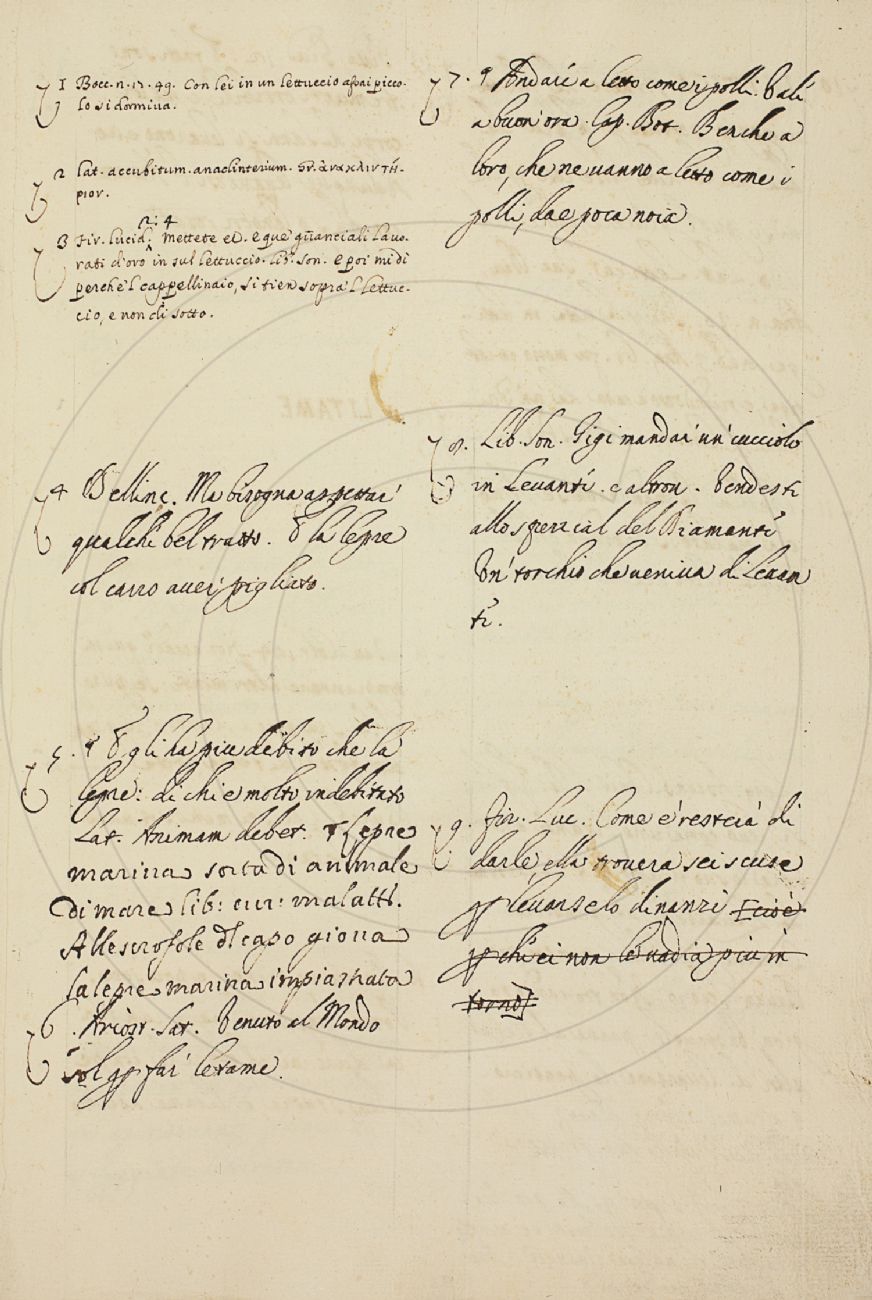 1 Bocc. n. 17. 49. Con lei in un lettuccio assai picco-
lo si dormiva.
2 Lat. accubitum. anaclinterium. Gr. ἀνακλιντή-
ριον.
2: 4
3 Fir. Lucid. Mettete ci. e que guanciali lavo-
rati d'oro in sul lettuccio. Lib. Son. E poi mi di
perche 'l cappellinaio, si tien sopra 'l lettuc-
cio, e non di sotto.
4 Bellinc. Ma bisogna aspettar
qualche bel tratto. E la lepre
col carro aver pigliato.
5. ¶ Egli ha piu debito che la
lepre: di chi e molto indebitato
Lat. Animam debet. ¶ Lepre
marina sorta di animale
di mare lib: cur: malatt.
Alle scrofole dl capo giova
la lepre marina impiastrata
6. Ariost. Sat. Venuto al Mondo
sol p far letame.
7. ¶ Andare a letto come i polli. Vale
a buon'ora. Cap. Bot. Benche a
loro, che ne vanno a letto come i
polli, dae poca noia.
8. Lib. Son. Gigi mandai un' cucciolo
in Levante. e altrov. Vendesti
allo spezial del Diamante
Un' torchio che veniva di Levan
te.
9. Fir. Luc. Come e' restera di
darle, ella trovera sei scuse
p levarselo dinanzi [cioè
p chi ei non le vadia piu in
torno]